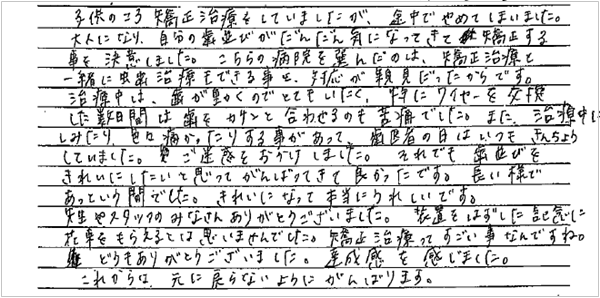 子供のころ矯正治療をしていましたが、途中でやめてしまいました。
大人になり、自分の歯並びがだんだん気になってきて矯正する
事を決意しました。こちらの病院を選んだのは、矯正治療と
一緒に虫歯治療もできる事と、対応が親身だったからです。
治療中は、歯が動くのでとてもいたく、特にワイヤーを交換
した数日間は歯をカチンと合わせるのも苦痛でした。また、治療中に
しみたり、色々痛かったりする事があって、歯医者の日はいつもきんちょう
していました。ご迷惑をおかけしました。それでも歯並びを
きれいにしたいと思ってがんばってきて良かったです。長い様で
あっという間でした。きれいになって本当にうれしいです。
先生やスタッフのみなさんありがとうございました。装置をはずした記念に
花束をもらえるとは思いませんでした。矯正治療ってすごい事なんですね。
どうもありがとうございました。達成感を感じました。
これからは、元に戻らないようにがんばります。